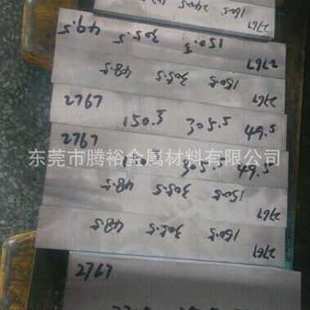 49.5 305.5 150.5 2767
48.5 305.5 150.5 2767
2767 150.5 305.5 49.5
东莞市腾裕金属材料有限公司
2767 305.5 49.5
48.5 305.5 150.5 2767
48.5 305.5 150.5 2767
2767